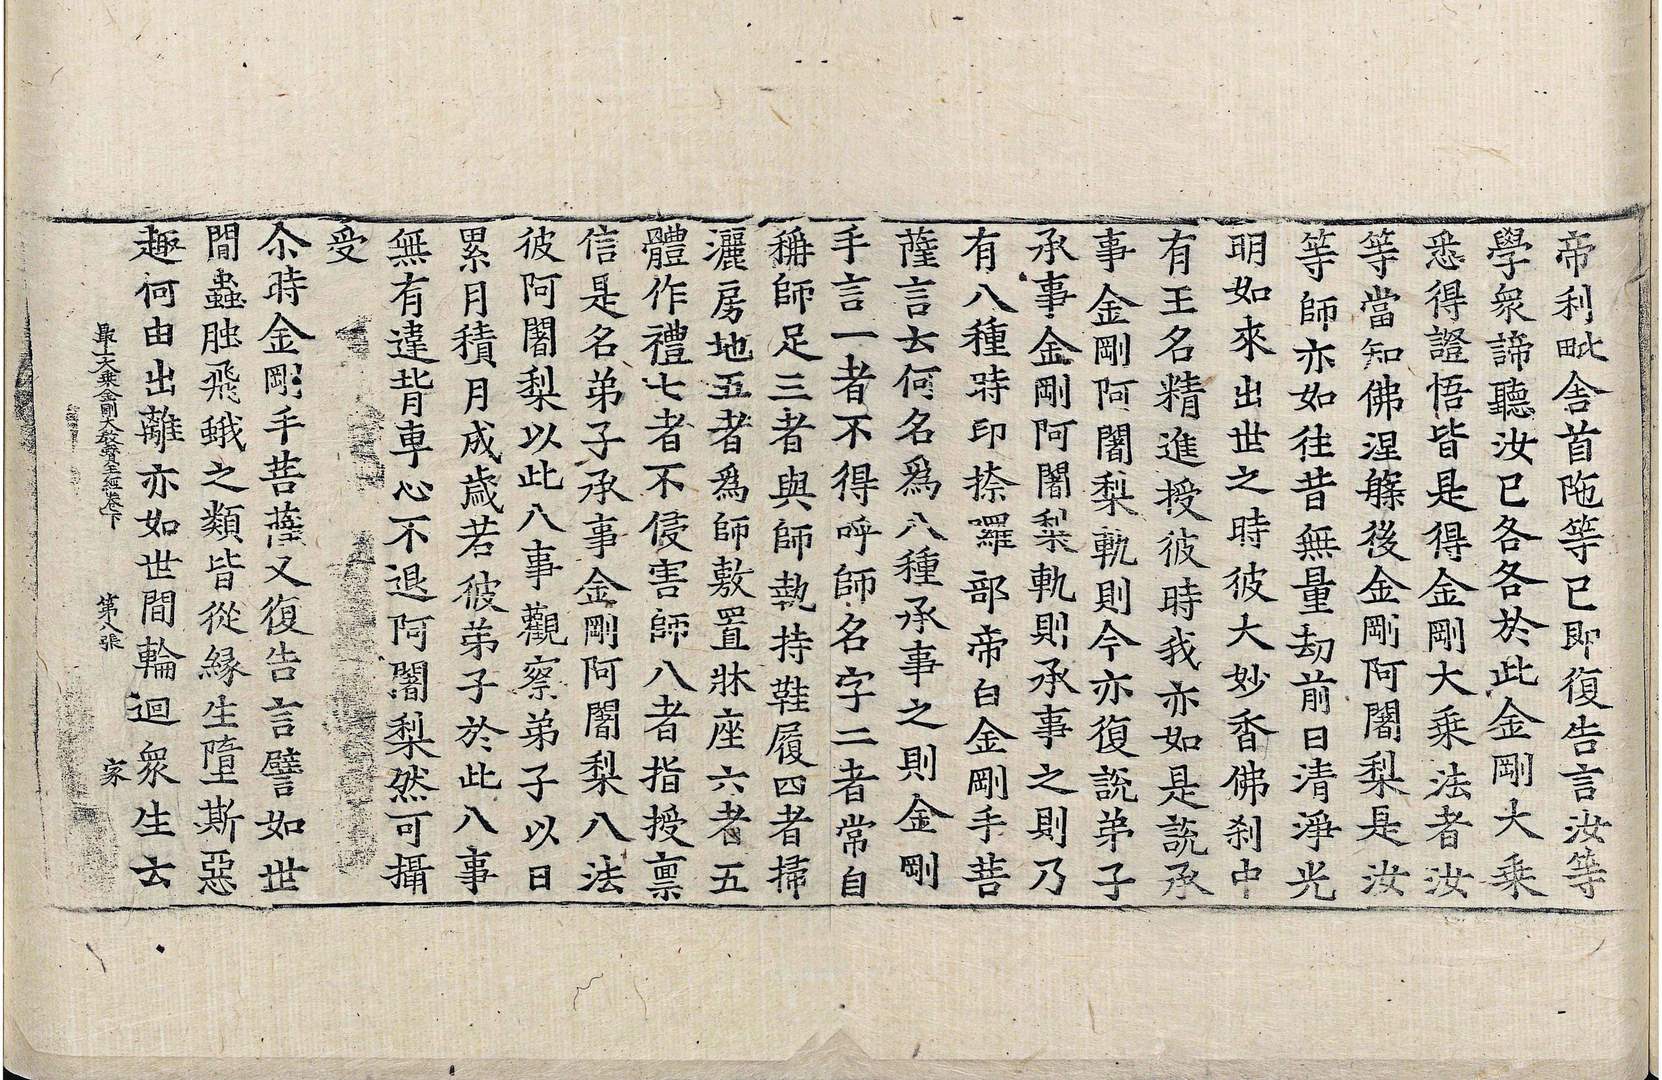 帝利毗舍首陁等已即復告言汝等
學衆諦聽汝已各各於此金剛大乘
悉得證悟皆是得金剛大乘法者汝
等當知佛涅槃後金剛阿闍梨是汝
等師亦如往昔無量劫前日清淨光
明如來出世之時彼大妙香佛刹中
有王名精進授彼時我亦如是說承
事金剛阿闍梨軌則今亦復說弟子
承事金剛阿闍梨軌則承事之則乃
有八種時印捺囉部帝白金剛手菩
薩言云何名爲八種承事之則金剛
手言一者不得呼師名字二者常自
稱師足三者與師執持鞋履四者掃
灑房地五者爲師敷置牀座六者五
體作禮七者不侵害師八者指授禀
信是名弟子承事金剛阿闍梨八法
彼阿闍梨以此八事觀察弟子以日
累月積月成歲若彼弟子於此八事
無有違背專心不退阿闍梨然可攝
受
尒時金剛手菩薩又復告言譬如世
間蟲䏙飛蛾之類皆從緣生墮斯惡
趣何由出離亦如世間輪迴衆生云
最上大乘金剛大教寶王經卷下 第八張 家